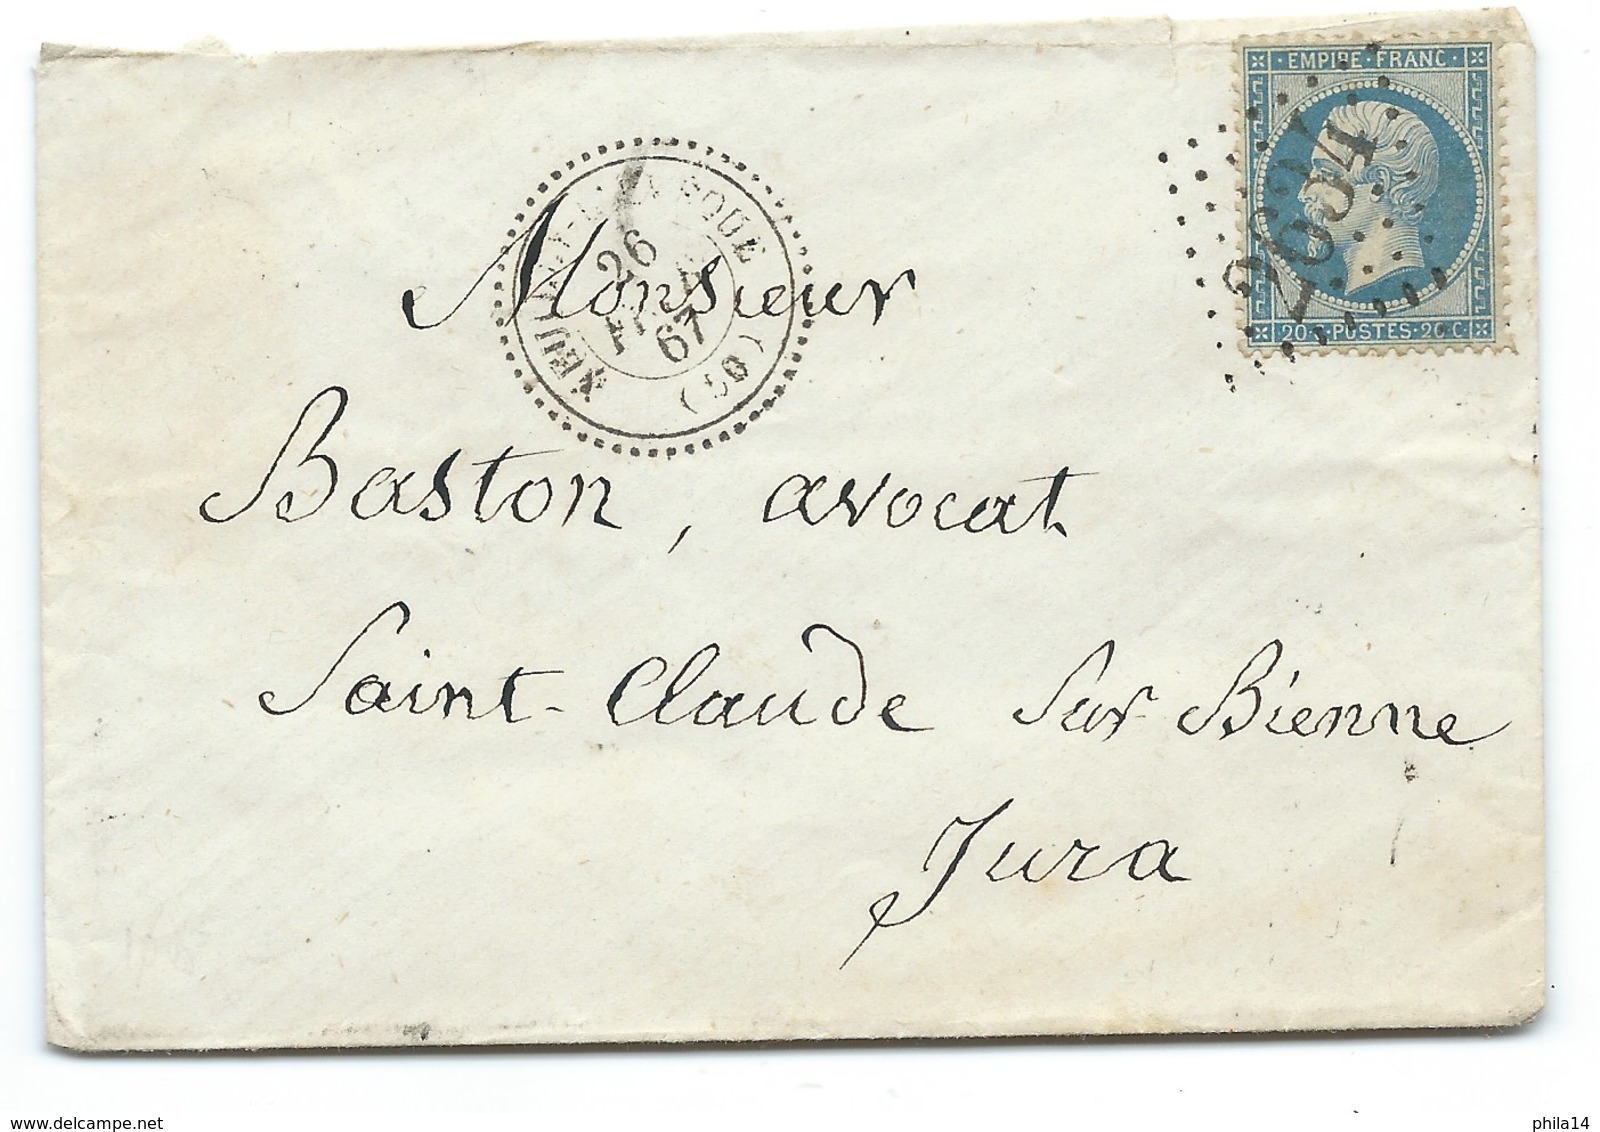 EMPIRE · FRANC ·
2634
20 · C · POSTES · 20 · C ·
26
67
(50)
Monsieur
Baston, avocat
Saint-Claude Sur Bienne
Jura
www.delcampe.net
phila14